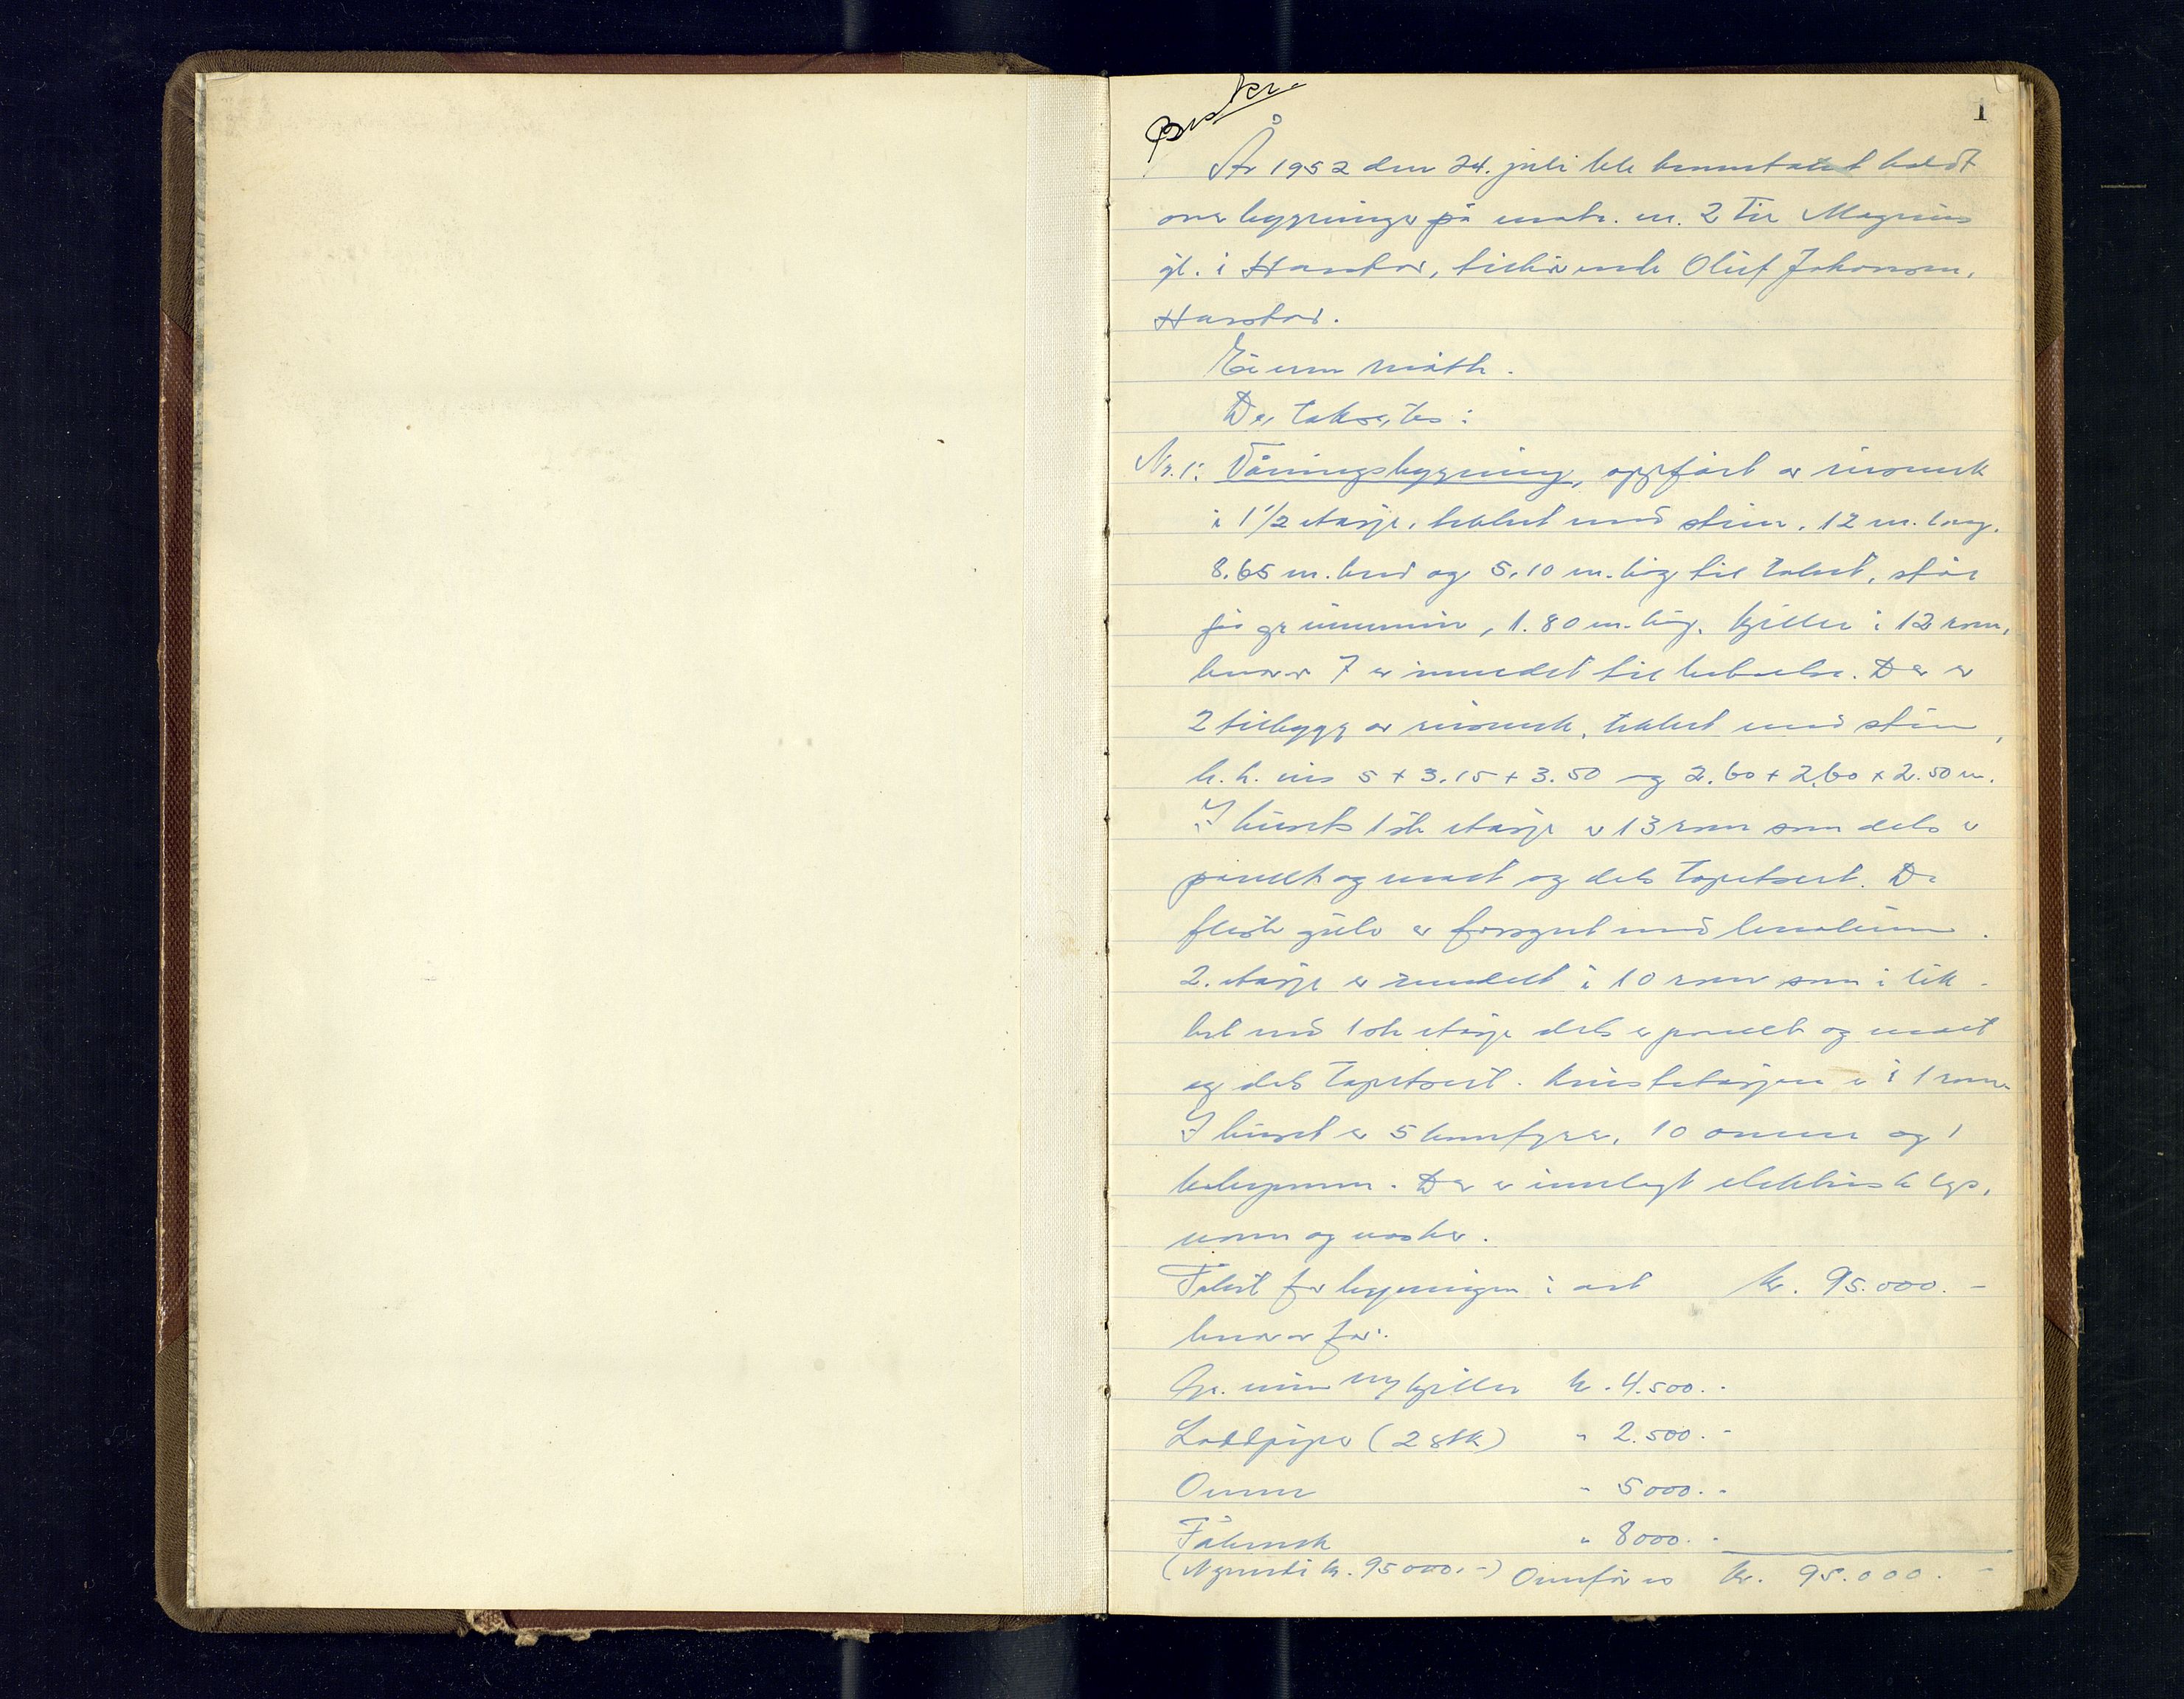 1
År 1952 den 24. juli ble branntakst holdt
over bygninger på matr. nr. 2 til Magnus
gt. i Harstad, tilhørende Oluf Johansen,
Harstad.
Eieren møtte.
Der takseres:
Nr. 1: Våningsbygning, oppført av reisverk
i 1 1/2 etasje, tekket med stein, 12 m. lang,
8.65 m. bred og 5.10 m. høg til taket, står
på grunnmur, 1.80 m. høg. Kjeller i 12 rom,
hvorav 7 er innredet til beboelse. Der er
2 tilbygg av reisverk, tekket med stein,
h.h.vis 5 x 3.15 x 3.50 og 2.60 x 2.60 x 2.50 m.
I husets 1ste etasje er 13 rom som dels er
panelt og malt og dels tapetsert. De
fleste gulv er forsynt med linoleum.
2. etasje er inndelt i 10 rom som i lik-
het med 1ste etasje dels er panelt og malt
og dels tapetsert. Kvistetasjen er i 1 rom.
I huset er 5 komfyrer, 10 ovner og 1
bakerovn. Der er innlagt elektrisk lys,
vann og vasker.
Takst for bygningen i alt kr. 95.000.-
hvorav for:
Gr. mur m/kjeller kr. 4.500.-
Loddpiper (2 stk) " 2.500.-
Ovner " 5000.-
Gråberg " 8000.-
(Nyverdi kr. 95000.-) Overføres kr. 95.000.-